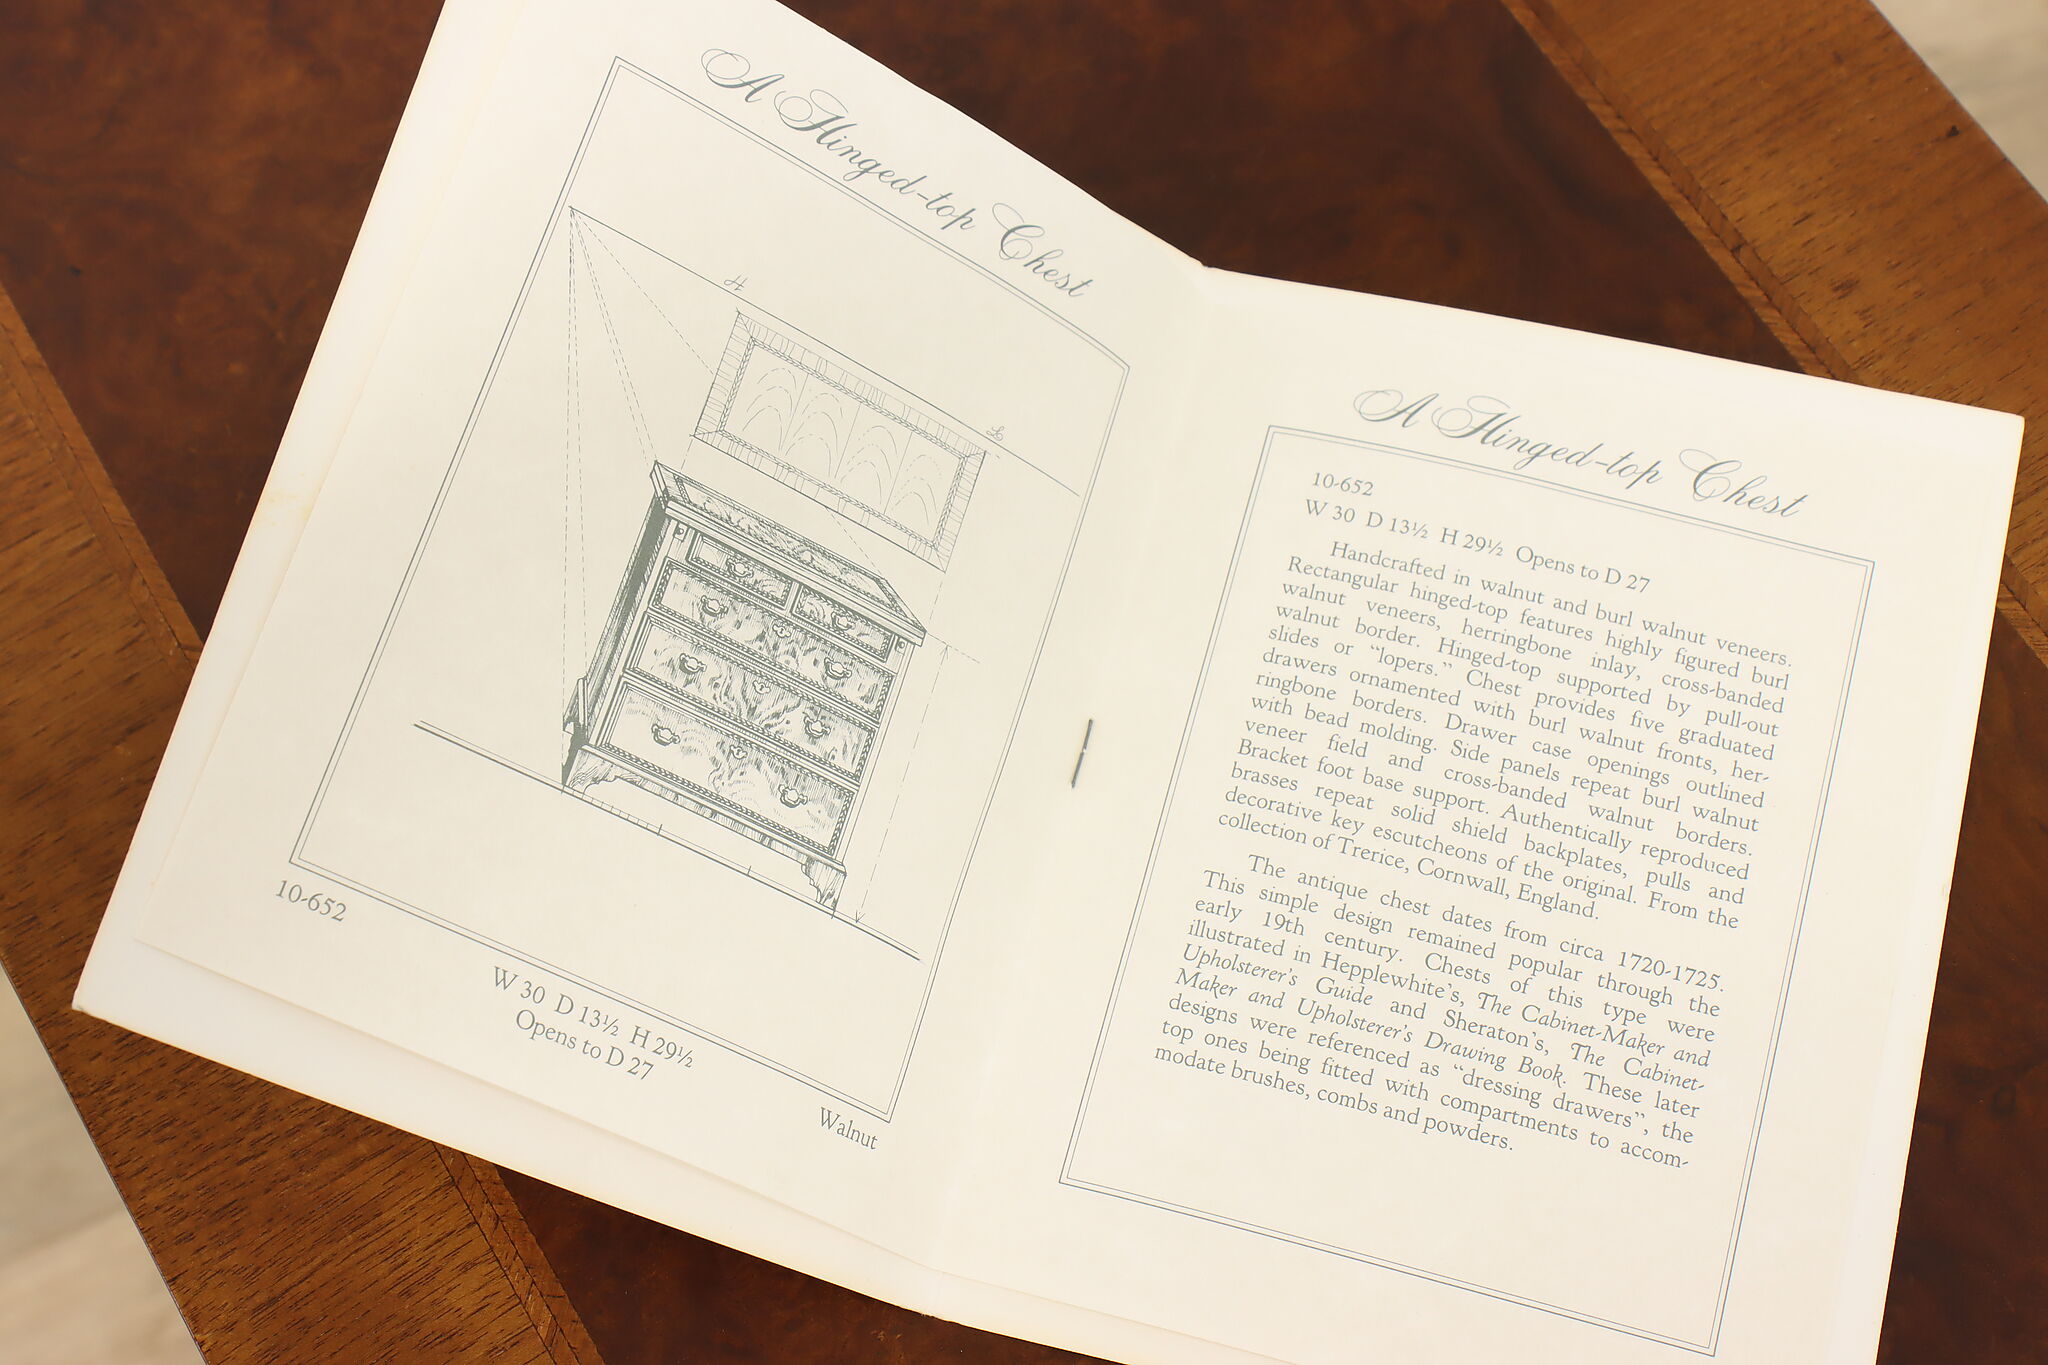 A Hinged-top Chest
H
L
10-652
W 30 D 13½ H 29½
Opens to D 27
Walnut
A Hinged-top Chest
10-652
W 30 D 13½ H 29½ Opens to D 27
Handcrafted in walnut and burl walnut veneers.
Rectangular hinged-top features highly figured burl
walnut veneers, herringbone inlay, cross-banded
walnut border. Hinged-top supported by pull-out
slides or “lopers.” Chest provides five graduated
drawers ornamented with burl walnut fronts, her-
ringbone borders. Drawer case openings outlined
with bead molding. Side panels repeat burl walnut
veneer field and cross-banded walnut borders.
Bracket foot base support. Authentically reproduced
brasses repeat solid shield backplates, pulls and
decorative key escutcheons of the original. From the
collection of Trerice, Cornwall, England.
The antique chest dates from circa 1720-1725.
This simple design remained popular through the
early 19th century. Chests of this type were
illustrated in Hepplewhite's, The Cabinet-Maker and
Upholsterer's Guide and Sheraton's, The Cabinet-
Maker and Upholsterer's Drawing Book. These later
designs were referenced as “dressing drawers”, the
top ones being fitted with compartments to accom-
modate brushes, combs and powders.